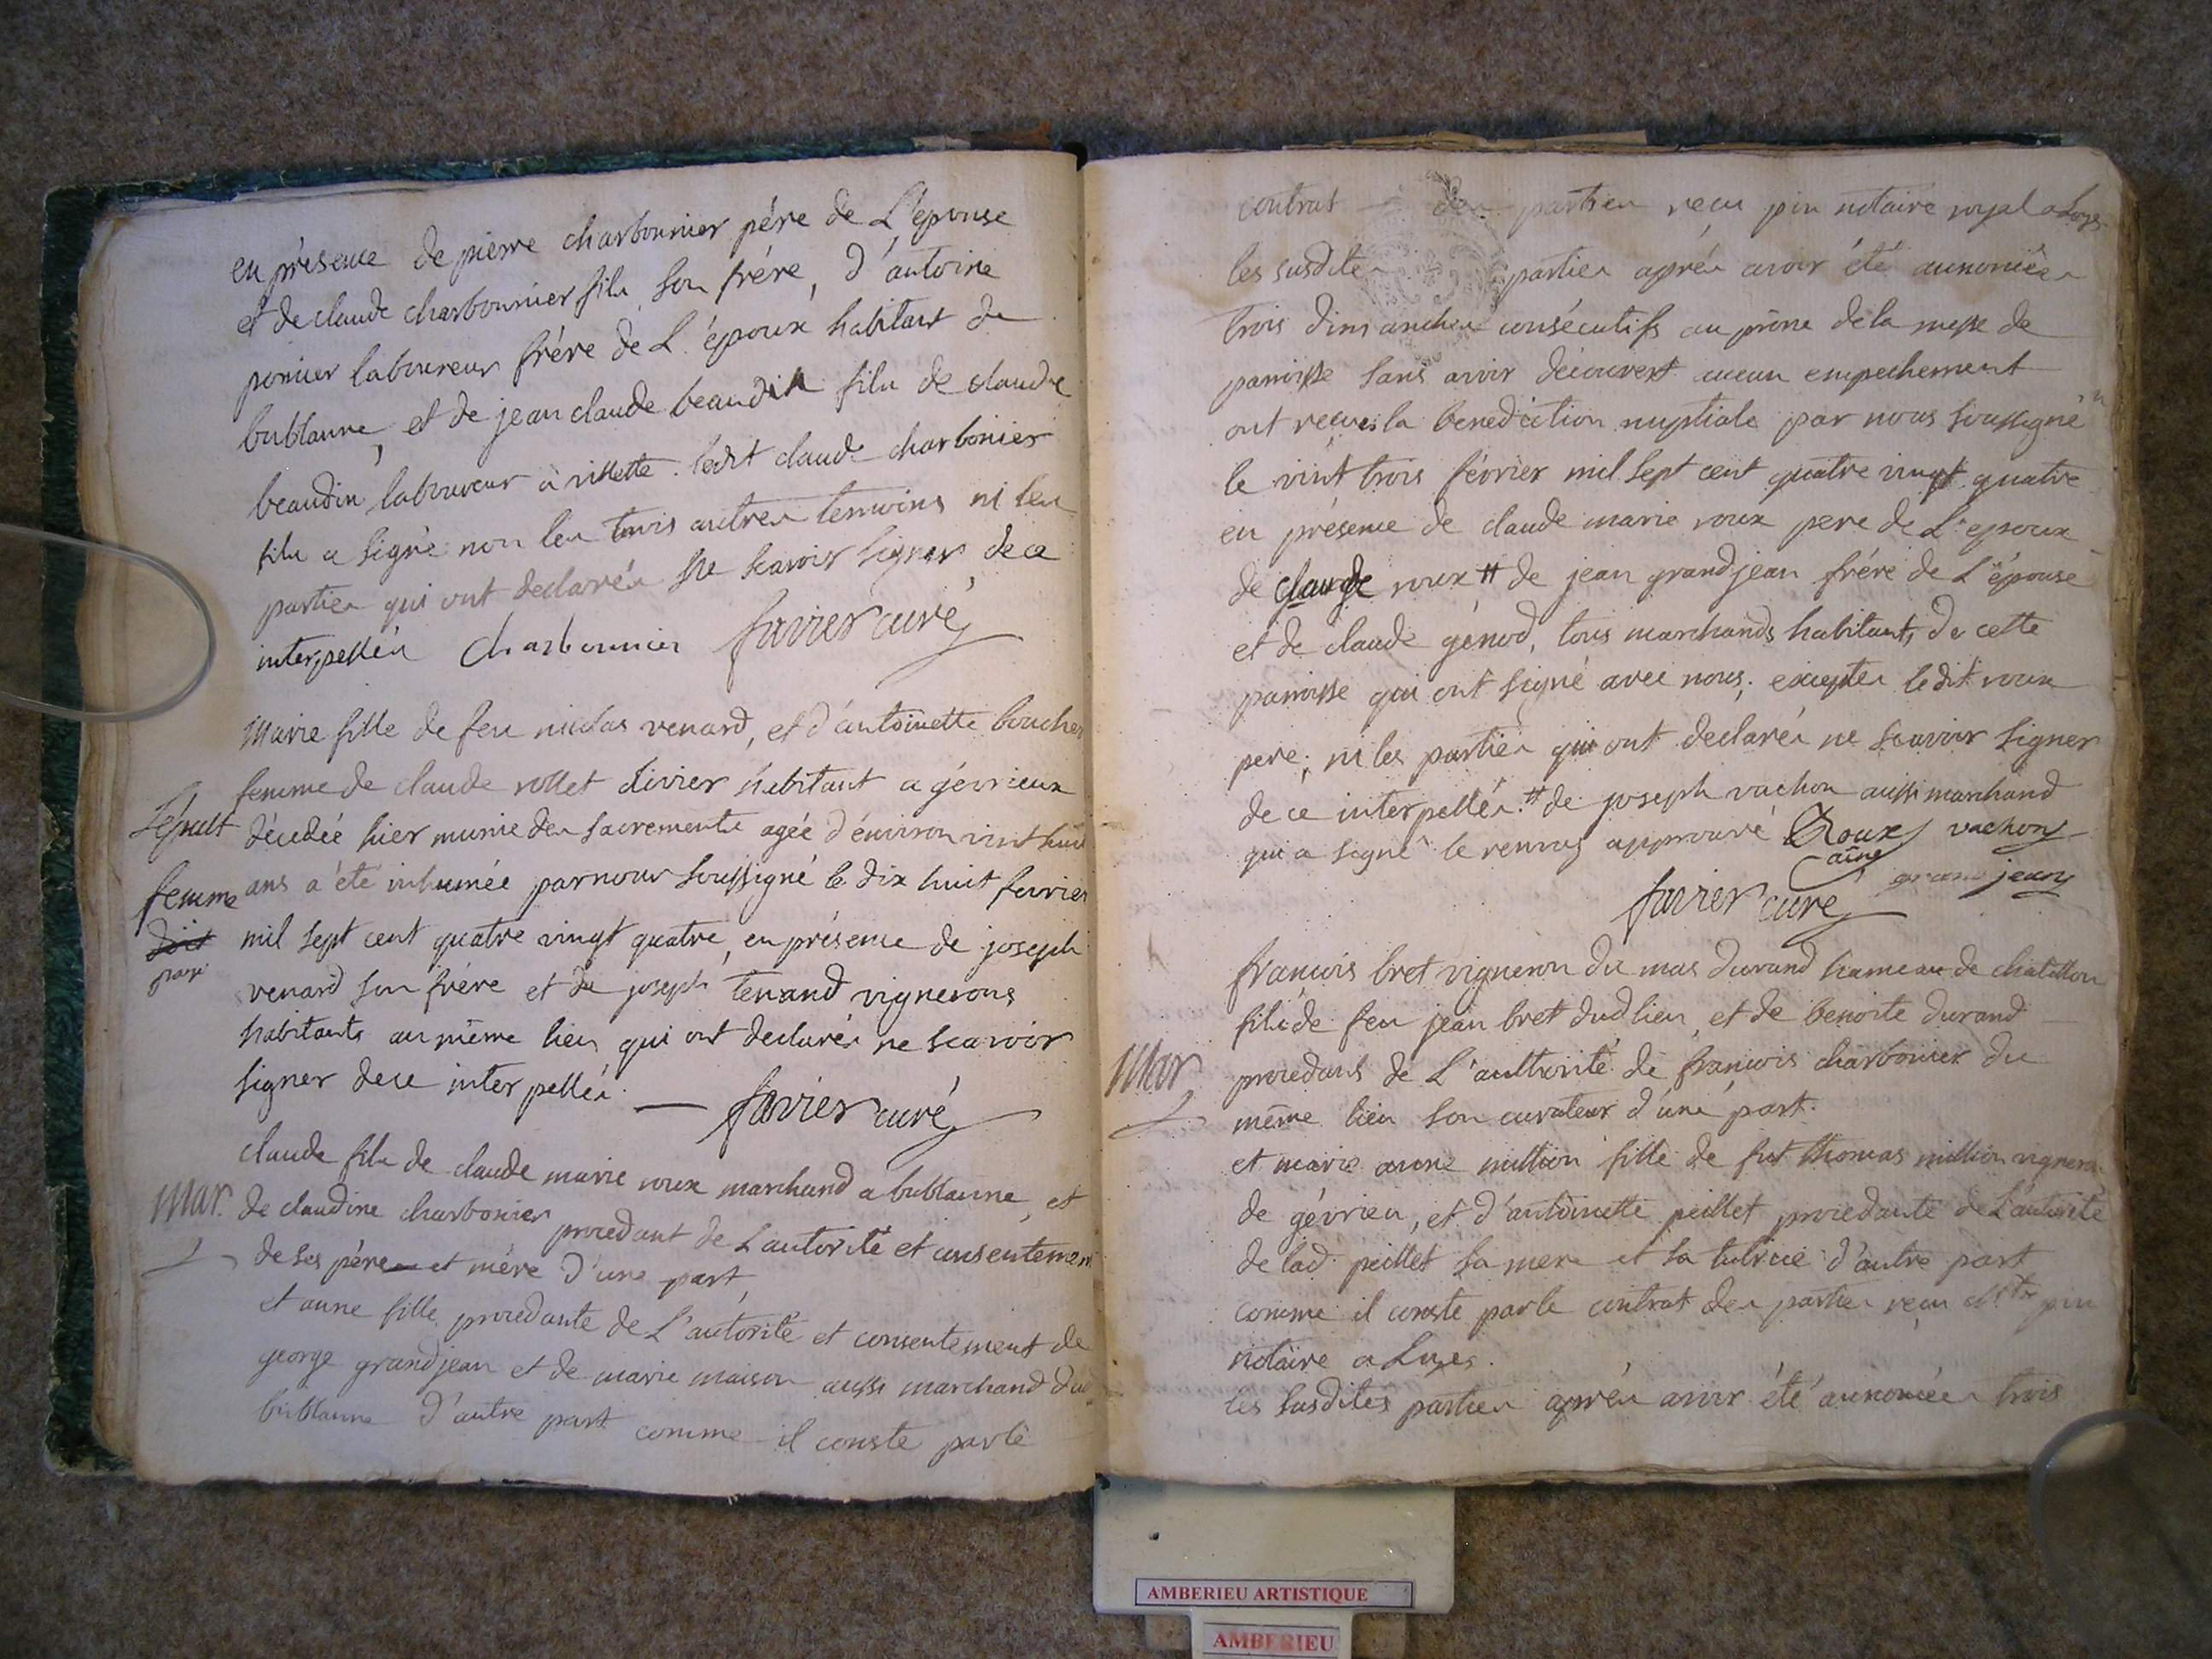 en présence de pierre charbonnier pére de L'épouse
et de claude charbonnier fils son frére, d'antoine
ponier laboureur frére de L'époux habitant de
bublanne, et de jean claude beaudin fils de claude
beaudin laboureur à villette. ledit claude charbonier
fils a signé non les trois autres temoins ni les
parties qui ont declarés ne scavoir signer, de ce
interpellés charbonnier favier curé
Marie fille de feu nicolas venard, et d'antoinette boucher
femme de claude rollet divier habitant a gévrieux
Sépult décédée hier munie des sacrements agée d'environ vint huit
femme ans a été inhumée par nous soussigné le dix huit fevrier
mil sept cent quatre vingt quatre, en présence de joseph
venard son frére et de joseph tenand vignerons
habitants au même lieu qui ont declarés ne scavoir
signer de ce interpellés. favier curé
claude fils de claude marie roux marchand a bublanne, et
Mar. de claudine charbonier procedant de L'autorité et consentement
de ses pére et mére d'une part,
et anne fille procedante de L'autorité et consentement de
george grandjean et de marie maison aussi marchand dud
bublanne d'autre part comme il conste par le
contrat des parties reçu pin notaire royal a Loyes
les susdites parties aprés avoir été annoncées
trois dimanches consécutifs au prône de la messe de
paroisse sans avoir découvert aucun empechement
ont reçues la benediction nuptiale par nous soussigné
le vint trois février mil sept cent quatre vingt quatre
en présence de claude marie roux pere de L'epoux
de claude roux # de jean grandjean frére de L'épouse
et de claude génod, tous marchands habitants de cette
paroisse qui ont signé avec nous; exceptés ledit roux
pere; ni les parties qui ont declarés ne scavoir signer
de ce interpellés. # de joseph vachon aussi marchand
qui a signé le renvoy approuvé Roux vachon
aîné grand jean
favier curé
françois bret vigneron du mas durand hameau de chatillon
fils de feu jean bret dud lieu, et de benoite durand
Mar procedant de L'authorité de françois charbonier du
même lieu son curateur d'une part.
et marie anne million fille de fut thomas million vigneron
de gévrieu, et d'antoinette peillet procedante de L'autorité
de lad. peillet sa mere et sa tutrice d'autre part
comme il conste par le contrat des parties reçu pin
notaire a Loyes.
les susdites parties aprés avoir été annoncées trois
AMBERIEU ARTISTIQUE
AMBERIEU